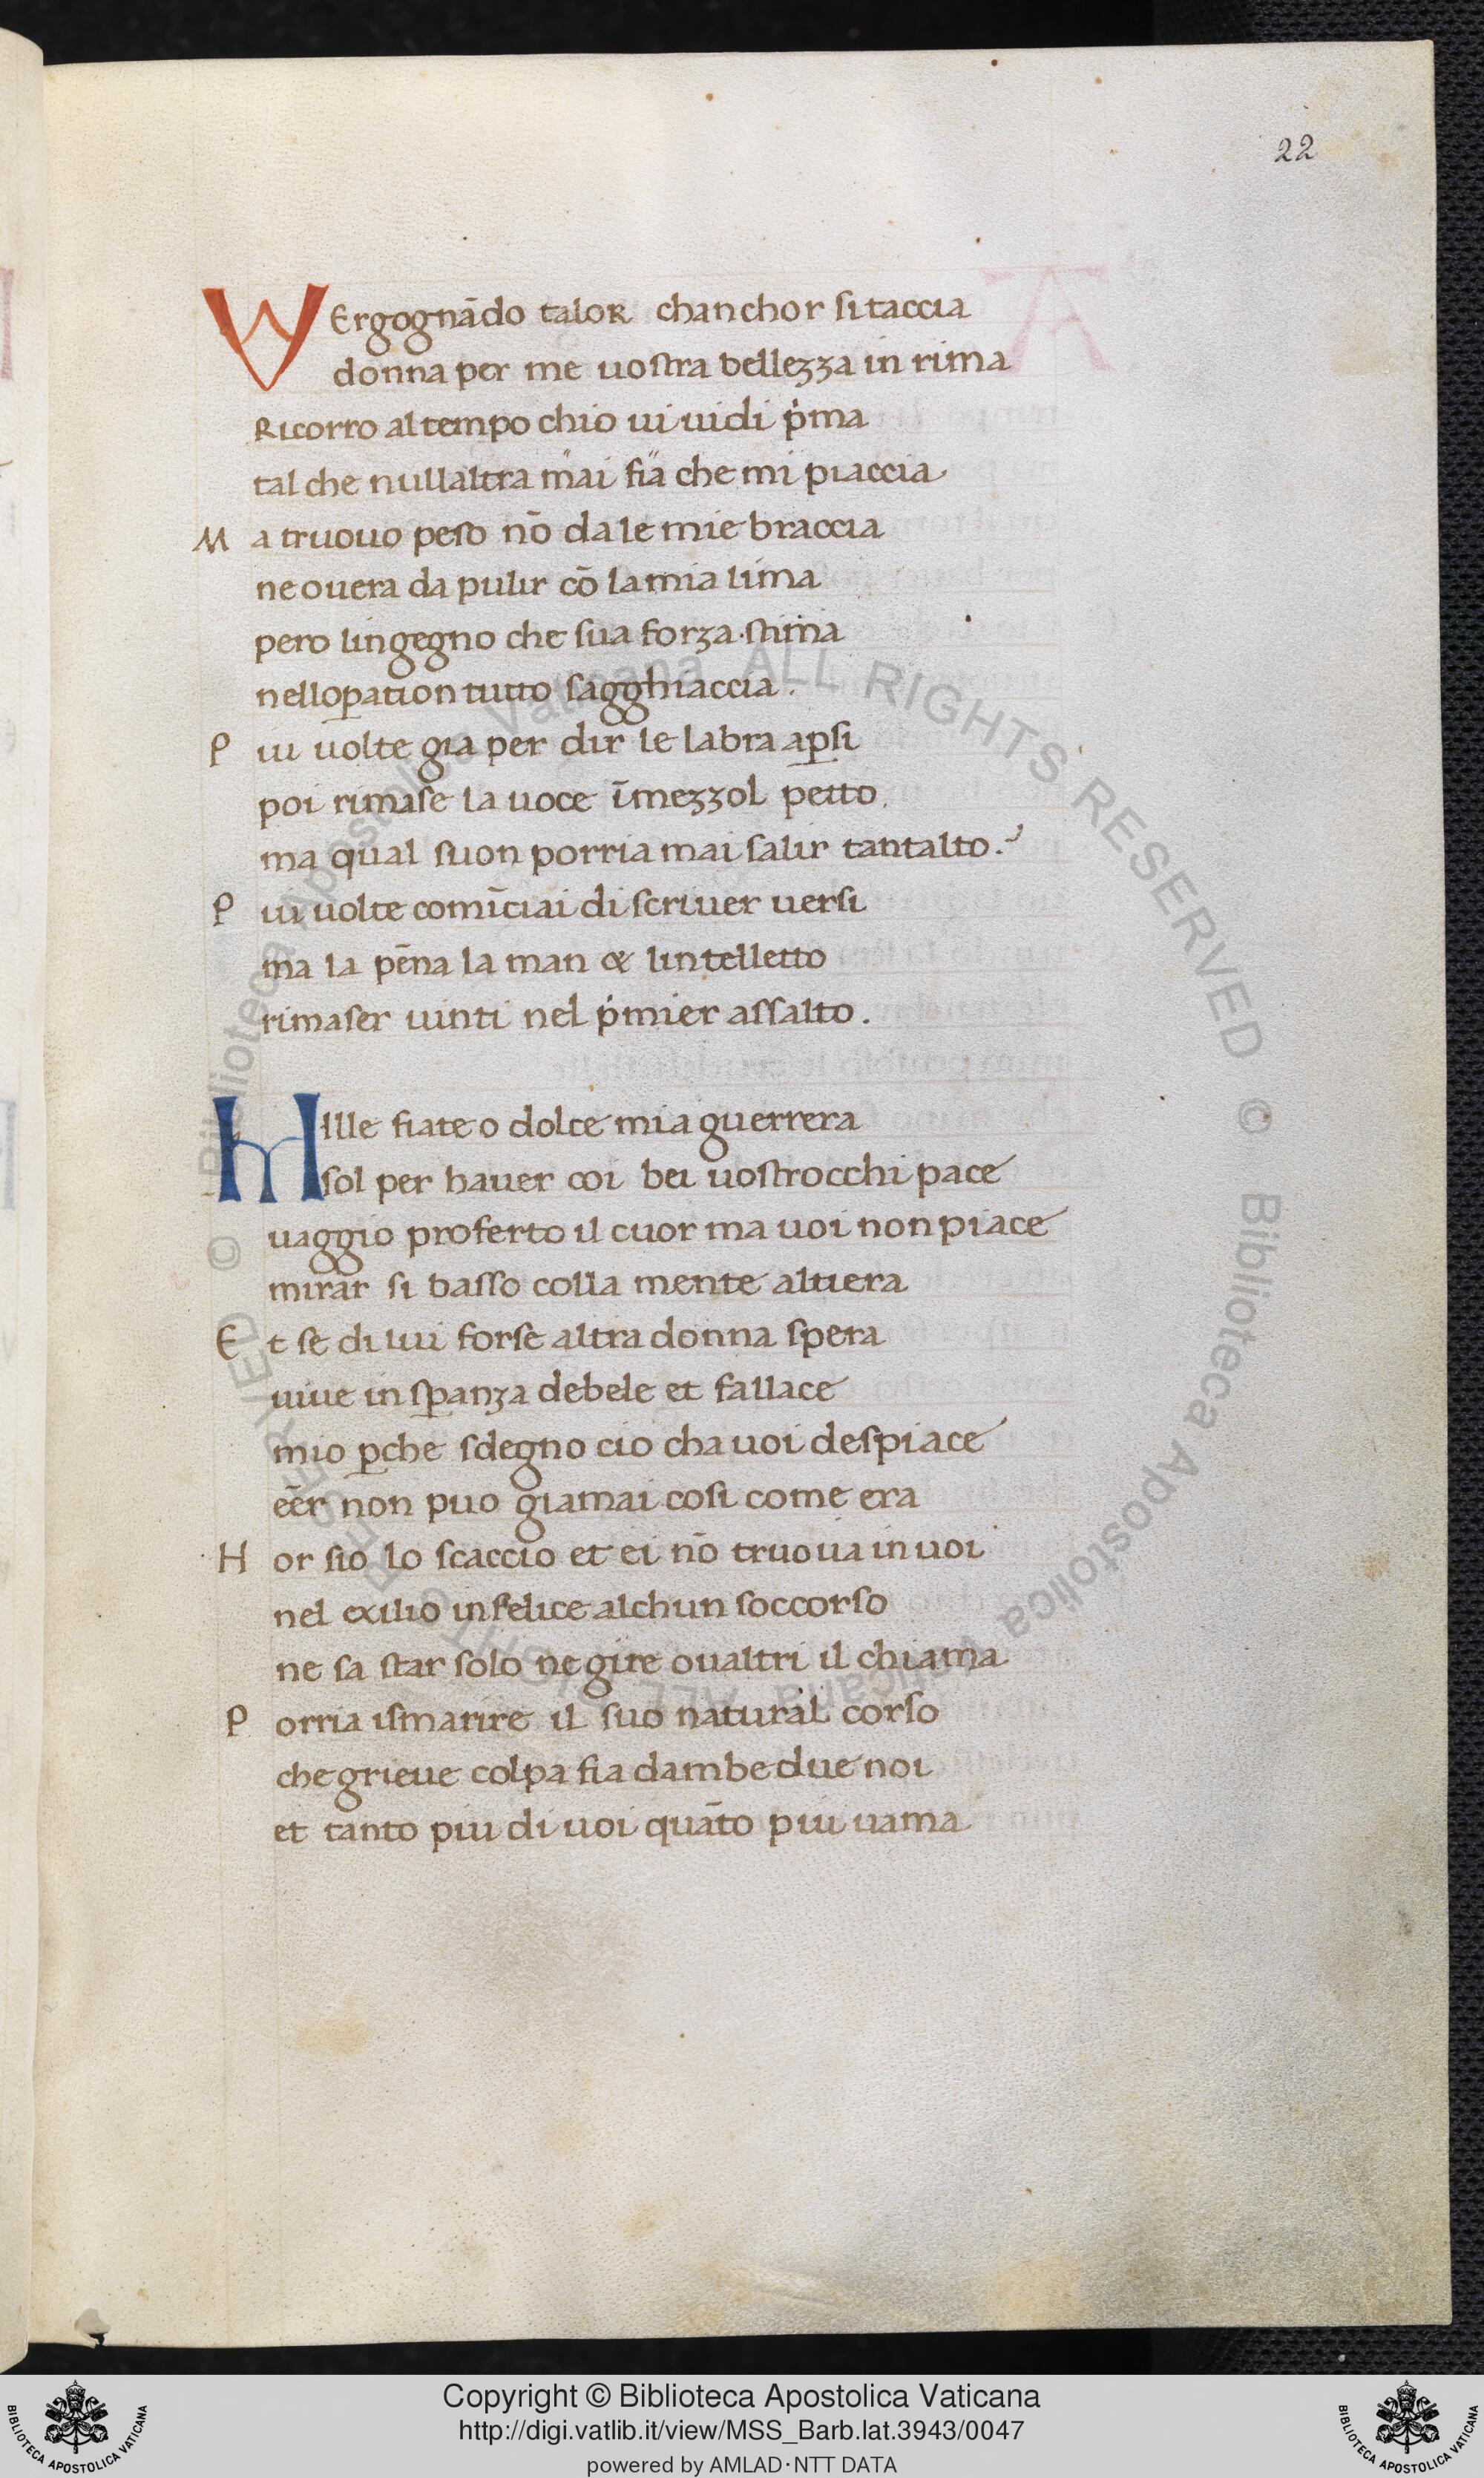 22
VErgognādo talor chanchor si taccia
donna per me uostra bellezza in rima
Ricorro al tempo chio ui uidi p̍ma
tal che nullaltra mai fia che mi piaccia
M a truouo peso nō da le mie braccia
ne ouera da pulir cō la mia lima
pero lingegno che sua forza stima
nellop̱ation tutto sagghiaccia.
P iu uolte gia per dir le labra ap̱si
poi rimase la uoce ī mezzol petto.
ma qual suon porria mai salir tantalto.
P iu uolte comīciai di scriuer uersi
ma la pēna la man & lintelletto
rimaser uinti nel p̍mier assalto.
MIlle fiate o dolce mia guerrera
sol per hauer coi bei uostrocchi pace
uaggio proferto il cuor ma uoi non piace
mirar si basso colla mente altiera
E t se di lui forse altra donna spera
uiue in sp̱anza debele et fallace
mio p̱che sdegno cio cha uoi despiace
eēr non puo giamai cosi come era
H or sio lo scaccio et ei nō truoua in uoi
nel exilio infelice alchun soccorso
ne sa star solo ne gire oualtri il chiama
P orria ismarire il suo natural corso
che grieue colpa fia dambedue noi
et tanto piu di uoi quāto piu uama
© Biblioteca Apostolica Vaticana ALL RIGHTS RESERVED © Biblioteca Apostolica Vaticana ALL RIGHTS RESERVED
Copyright © Biblioteca Apostolica Vaticana
http://digi.vatlib.it/view/MSS_Barb.lat.3943/0047
powered by AMLAD·NTT DATA
BIBLIOTECA APOSTOLICA VATICANA
BIBLIOTECA APOSTOLICA VATICANA